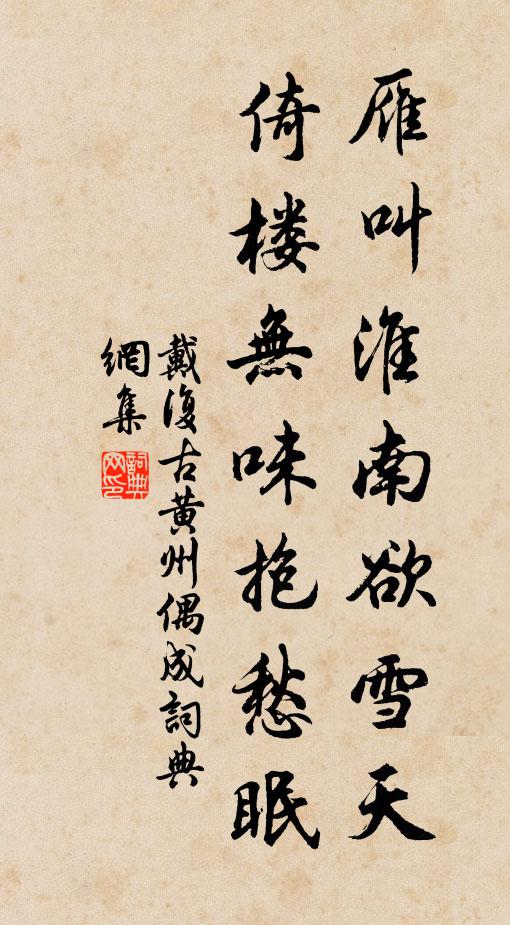 雁叫淮南欲雪天
倚楼無味抱愁眠
戴復古黄州偶成詞典
網集
詞典
网印